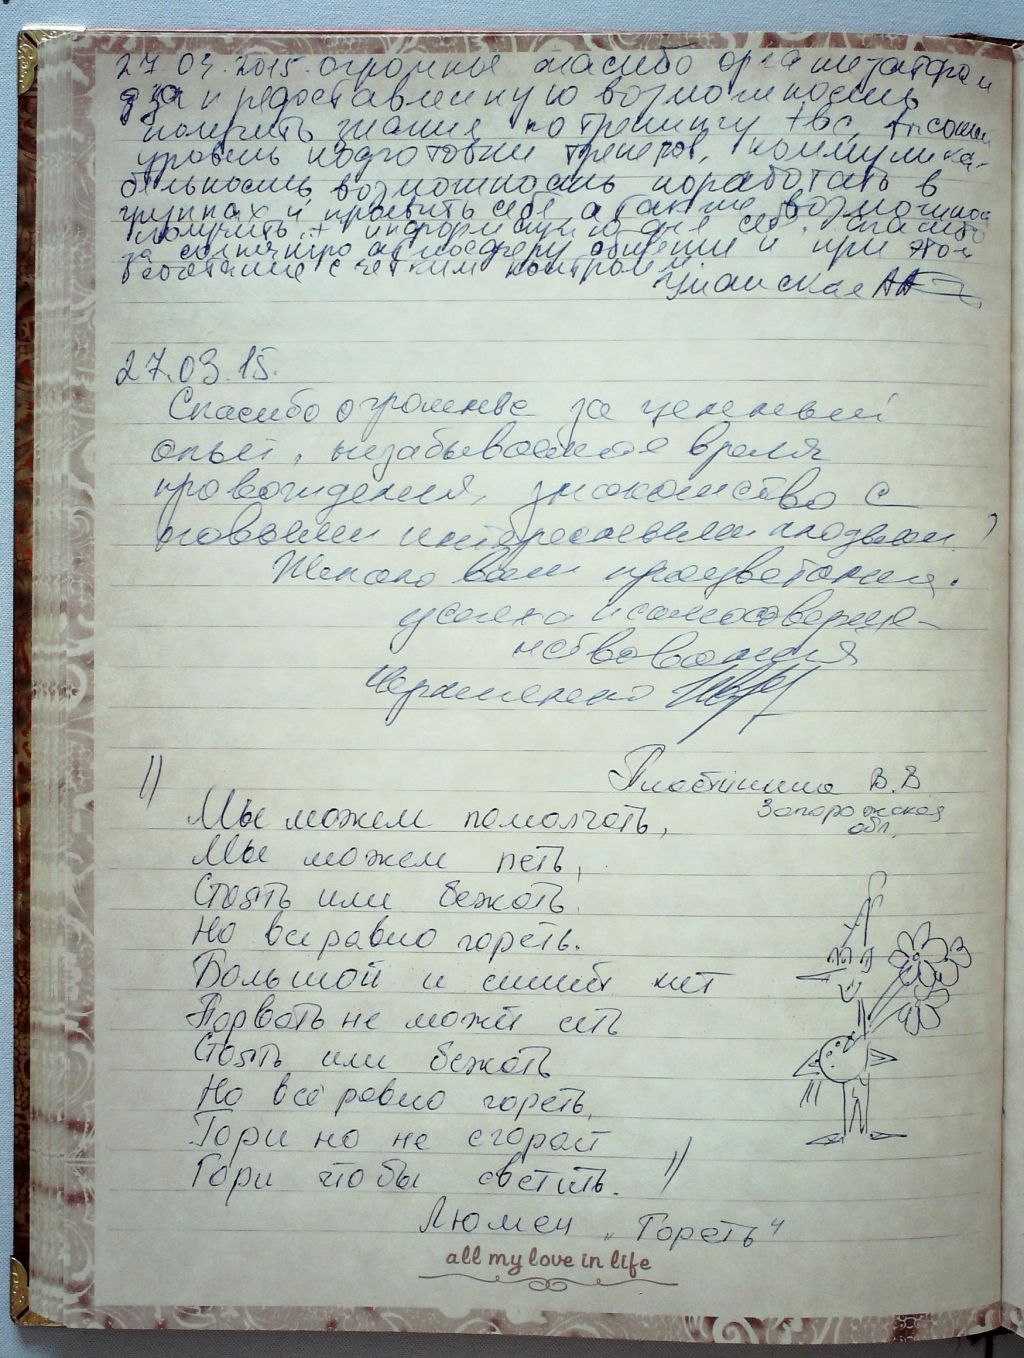 27.03.2015. огромное спасибо организаторам
за предоставленную возможность
получить знания по тренингу твс, высокий
уровень подготовки тренеров, коммуника-
бельность, возможность поработать в
группах и проявить себя, а также возможность
получить информацию для себя. Спасибо
за солнечную атмосферу общения и при этом
сочетание с четким контролем
27.03.15.
Спасибо огромное за ценный
опыт, незабываемое время
провождения, знакомство с
новыми интересными людьми.
Желаю вам процветания,
успеха и самосоверше-
нствования
Пластинина В.В
Запорожская
обл.
"
Мы можем помолчать,
Мы можем петь,
Стоять или бежать
Но все равно гореть.
Большой и синий кит
Порвать не может сеть
Стоять или бежать
Но всё равно гореть,
Гори но не сгорай
Гори чтобы светить. "
Люмен "Гореть"
all my love in life